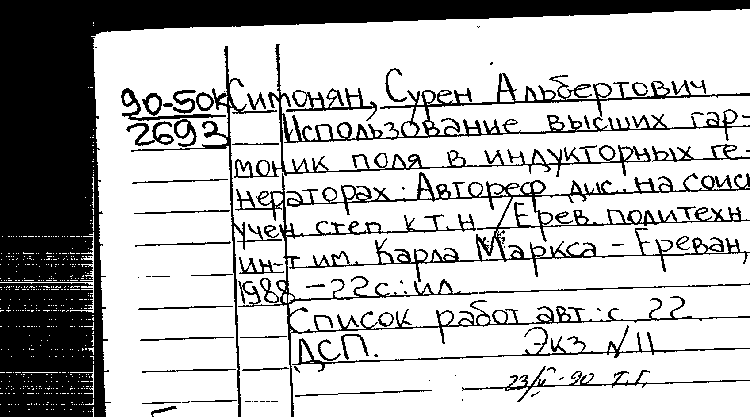 90-50к Симонян, Сурен Альбертович
2693 Использование высших гар-
моник поля в индукторных ге-
нераторах: Автореф дис. на соиск
учен. степ. к.т.н. / Ерев. политехн.
ин-т им. Карла Маркса - Ереван,
1988 - 22 с.: ил.
Список работ авт.: с 22.
ДСП. Экз N 11
23/V-90 Т.Г.